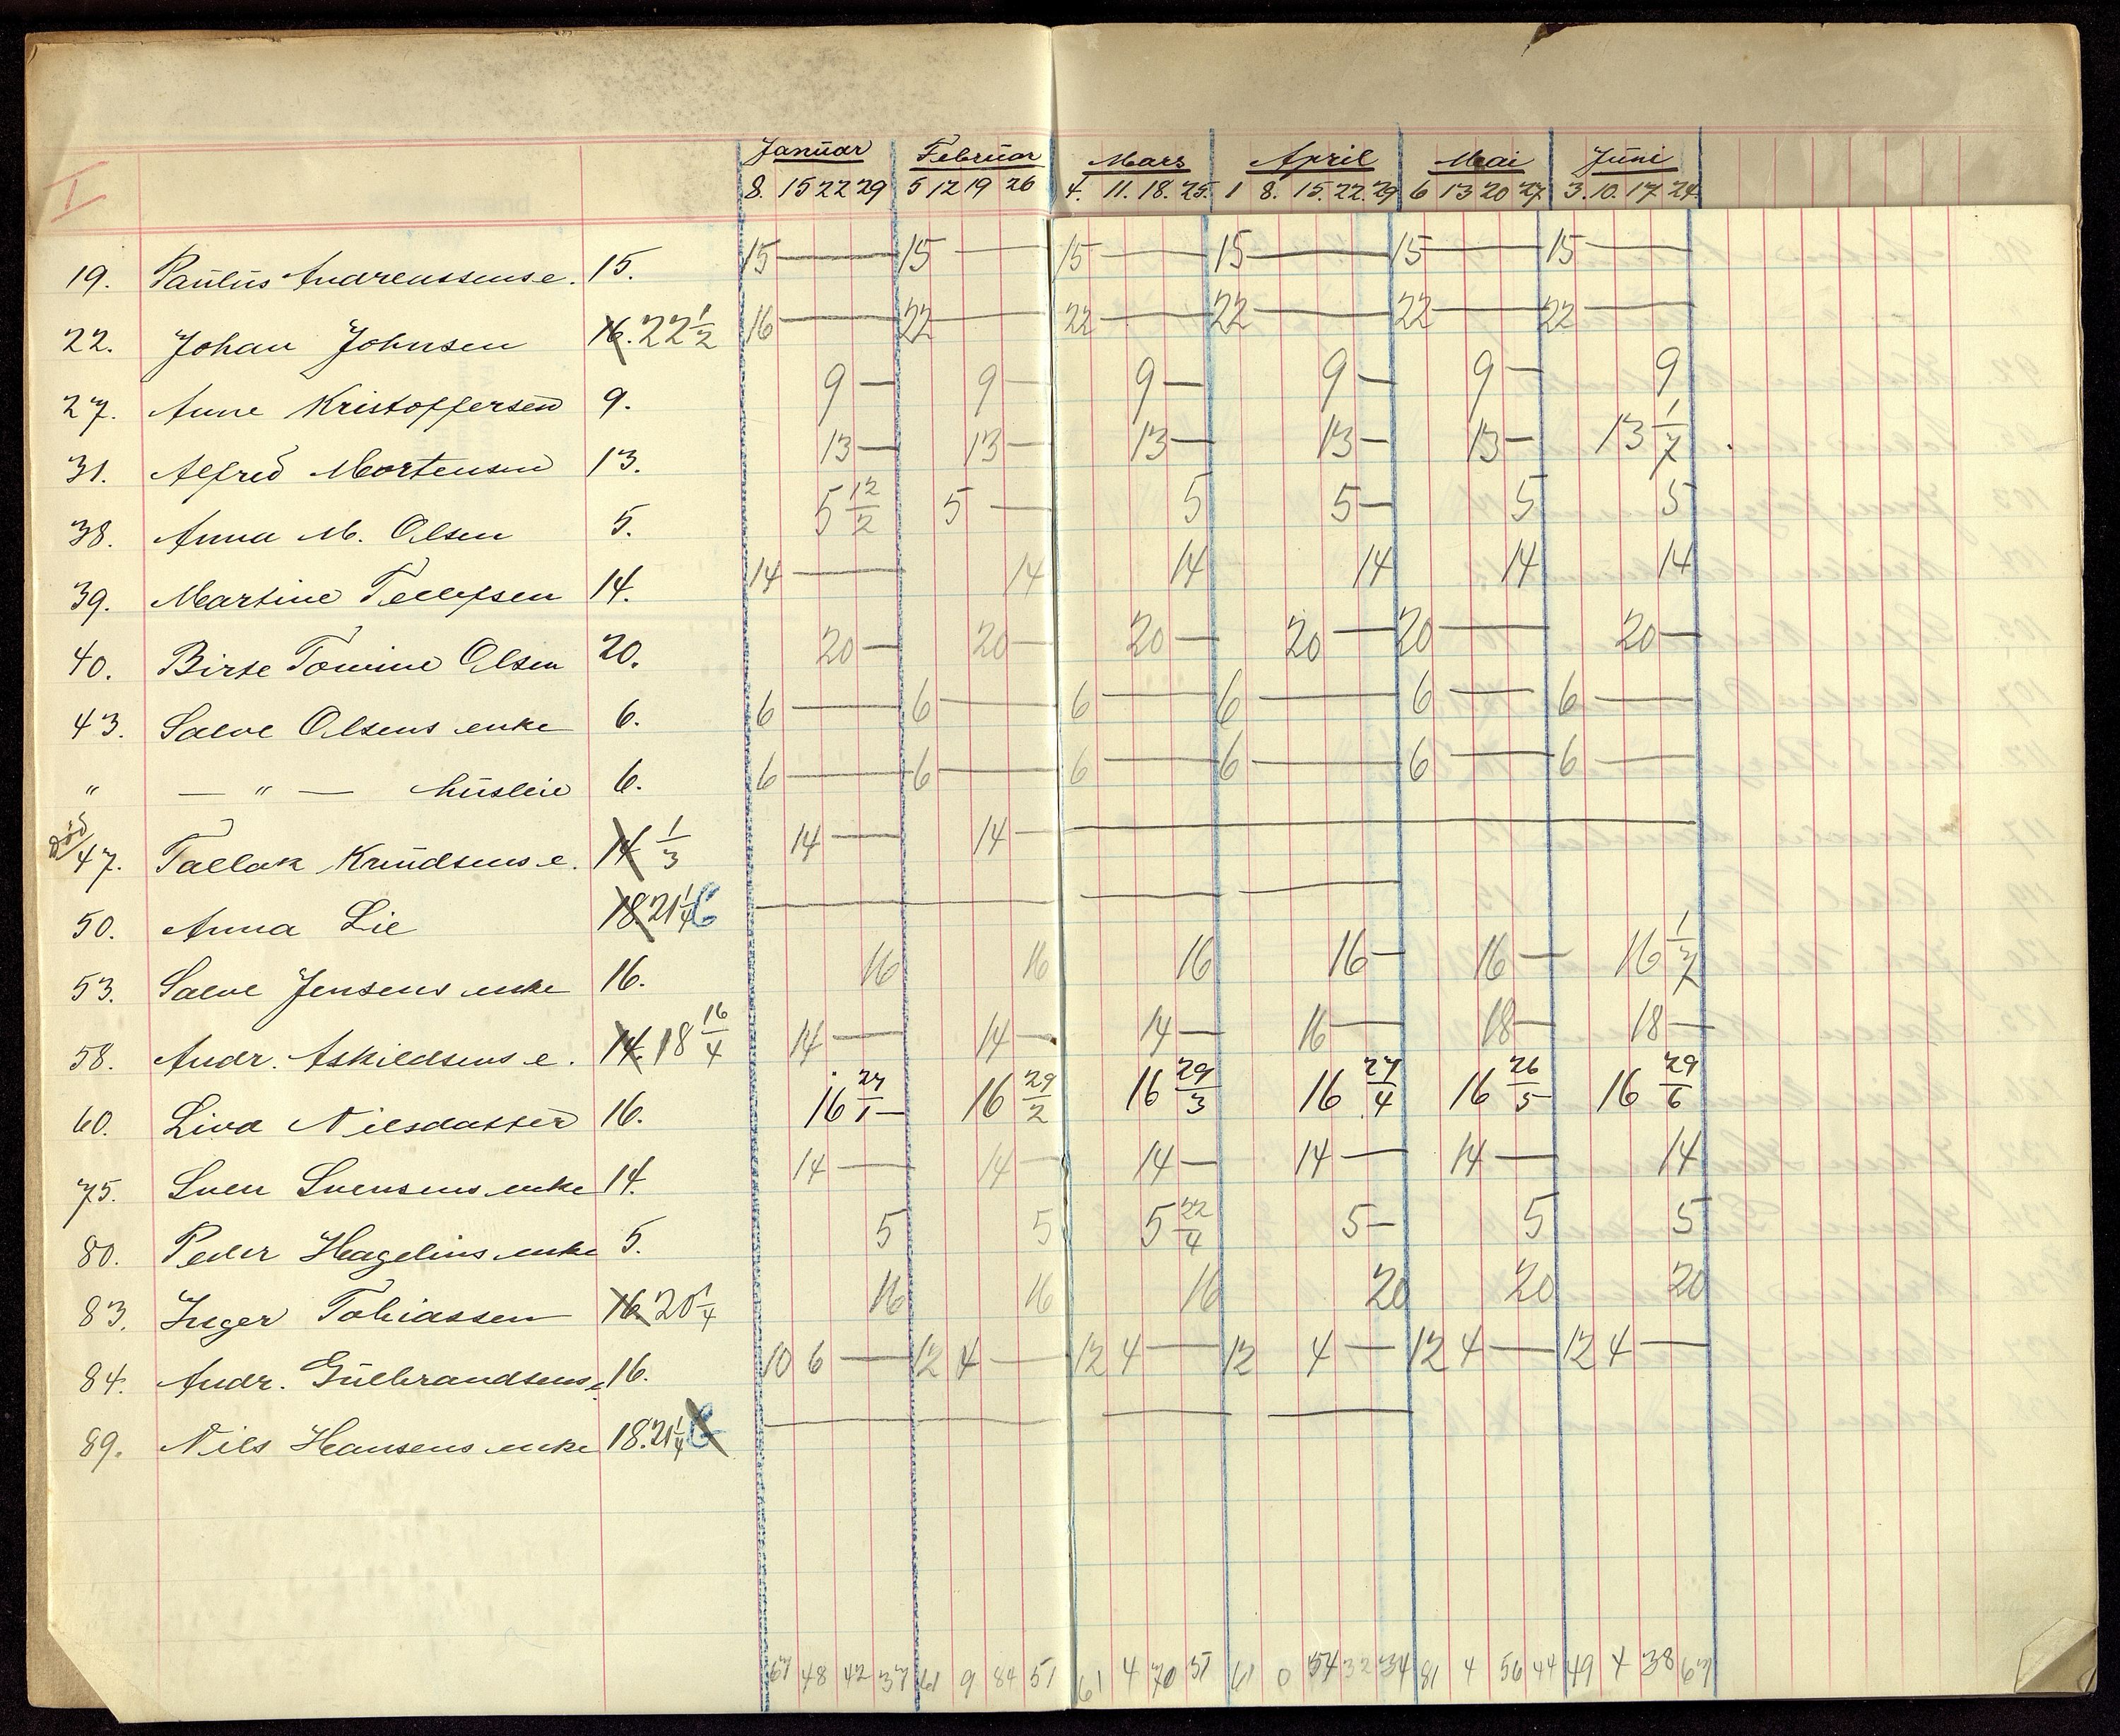 I
Januar Februar Mars April Mai Juni
8. 15 22 29 5 12 19 26 4. 11. 18. 25. 1 8. 15. 22. 29 6 13 20 27. 3. 10. 17 24.
19. Paulus Andreassens e. 15. 15 — 15 — 15 — 15 — 15 — 15 —
22. Johan Johnsen 16. 22 1/2 16 — 22 — 22 — 22 — 22 — 22 —
27. Anne Kristoffersen 9. 9 — 9 — 9 — 9 — 9 — 9
31. Alfred Mortensen 13. 13 — 13 — 13 — 13 — 13 — 13 1/7
38. Anna M. Olsen 5. 5 12/2 5 — 5 5 — 5 5
39. Martine Tellefsen 14. 14 — 14 14 14 14 14
40. Birte Tomine Olsen 20. 20 — 20 — 20 — 20 — 20 — 20 —
43. Salve Olsens enke 6. 6 — 6 — 6 — 6 — 6 — 6 —
" — " — husleie 6. 6 — 6 — 6 — 6 — 6 — 6 —
død 47. Tallak Knudsens e. 14 1/3 14 — 14 — —
50. Anna Lie 18. 21 1/4 6 — — —
53. Salve Jensens enke 16. 16 16 16 16 — 16 — 16 1/7
58. Andr. Askildsens e. 14. 18 16/4 14 — 14 — 14 — 16 — 18 — 18 —
60. Liva Nilsdatter 16. 16 27/1 — 16 29/2 16 29/3 16 27/4 16 26/5 16 29/6
75. Sven Svensens enke 14. 14 — 14 — 14 — 14 — 14 — 14
80. Peder Hagelins enke 5. 5 5 5 22/4 5 — 5 5
83. Inger Tobiassen 16. 20 1/4 16 16 16 20 20 20
84. Andr. Gulbrandsens e. 16. 10 6 — 12 4 — 12 4 — 12 4 — 12 4 — 12 4 —
89. Nils Hansens enke 18. 21 1/4 6 — — —
67 48 42 37 61 9 84 51 61 4 70 51 61 0 54 32 34 81 4 56 44 49 4 38 67